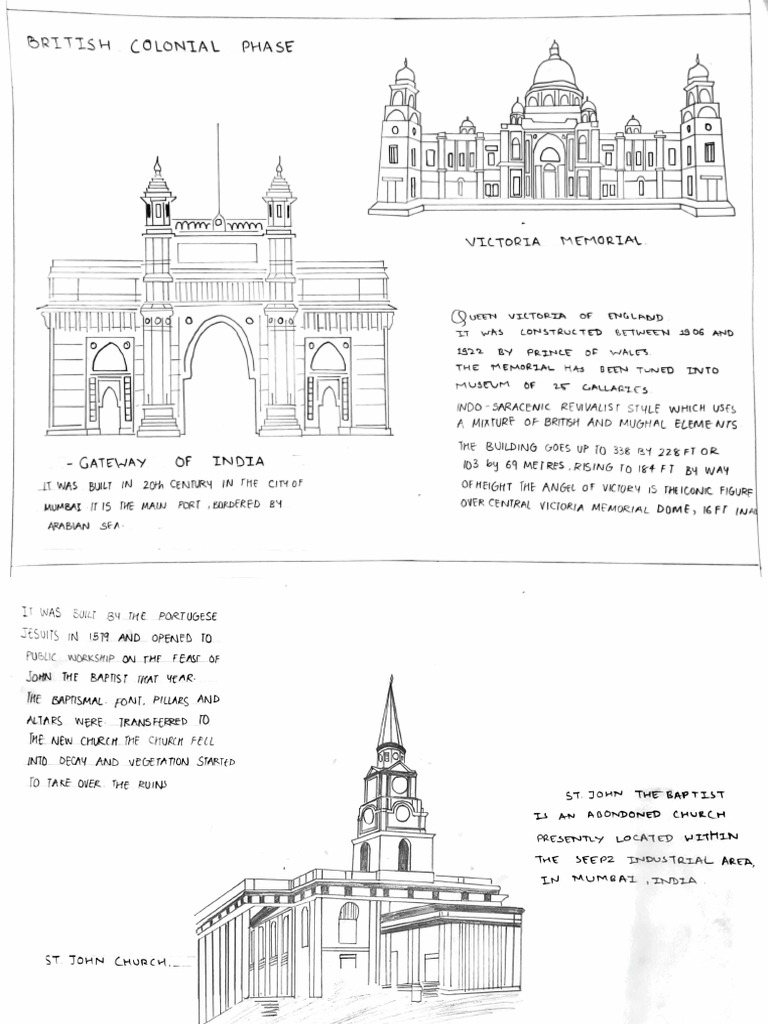 BRITISH COLONIAL PHASE
VICTORIA MEMORIAL.
QUEEN VICTORIA OF ENGLAND
IT WAS CONSTRUCTED BETWEEN 1906 AND
1922 BY PRINCE OF WALES.
THE MEMORIAL HAS BEEN TUNED INTO
MUSEUM OF 25 GALLARIES.
INDO-SARACENIC REVIVALIST STYLE WHICH USES
A MIXTURE OF BRITISH AND MUGHAL ELEMENTS
THE BUILDING GOES UP TO 338 BY 228 FT OR
103 by 69 METRES, RISING TO 184 FT BY WAY
OF HEIGHT THE ANGEL OF VICTORY IS THE ICONIC FIGURE
OVER CENTRAL VICTORIA MEMORIAL DOME, 16 FT
- GATEWAY OF INDIA
IT WAS BUILT IN 20th CENTURY IN THE CITY OF
MUMBAI IT IS THE MAIN PORT, BORDERED BY
ARABIAN SEA.
IT WAS BUILT BY THE PORTUGESE
JESUITS IN 1579 AND OPENED TO
PUBLIC WORKSHIP ON THE FEAST OF
JOHN THE BAPTIST THAT YEAR.
THE BAPTISMAL FONT, PILLARS AND
ALTARS WERE TRANSFERRED TO
THE NEW CHURCH THE CHURCH FELL
INTO DECAY AND VEGETATION STARTED
TO TAKE OVER THE RUINS
ST. JOHN THE BAPTIST
IS AN ABONDONED CHURCH
PRESENTLY LOCATED WITHIN
THE SEEPZ INDUSTRIAL AREA,
IN MUMBAI, INDIA.
ST. JOHN CHURCH.